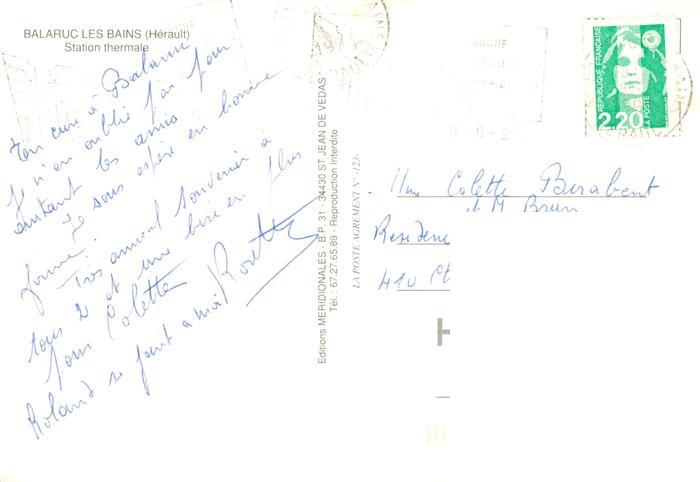 BALARUC LES BAINS (Hérault)
Station thermale
en cure à Balaruc
Je n'en oublie pas pour
autant les amis
Je vous espère en bonne
forme.
Très amical souvenir à
tous 2 et une bise en plus
pour Colette
Roland se joint à moi
Editions MERIDIONALES - B.P. 31 - 34430 ST JEAN DE VEDAS
Tél.: 67.27.65.89 - Reproduction Interdite
LA POSTE AGREMENT N° -123-
REPUBLIQUE FRANÇAISE
2,20
LA POSTE
Mme Colette Berabent
et M Brun
Reside
410